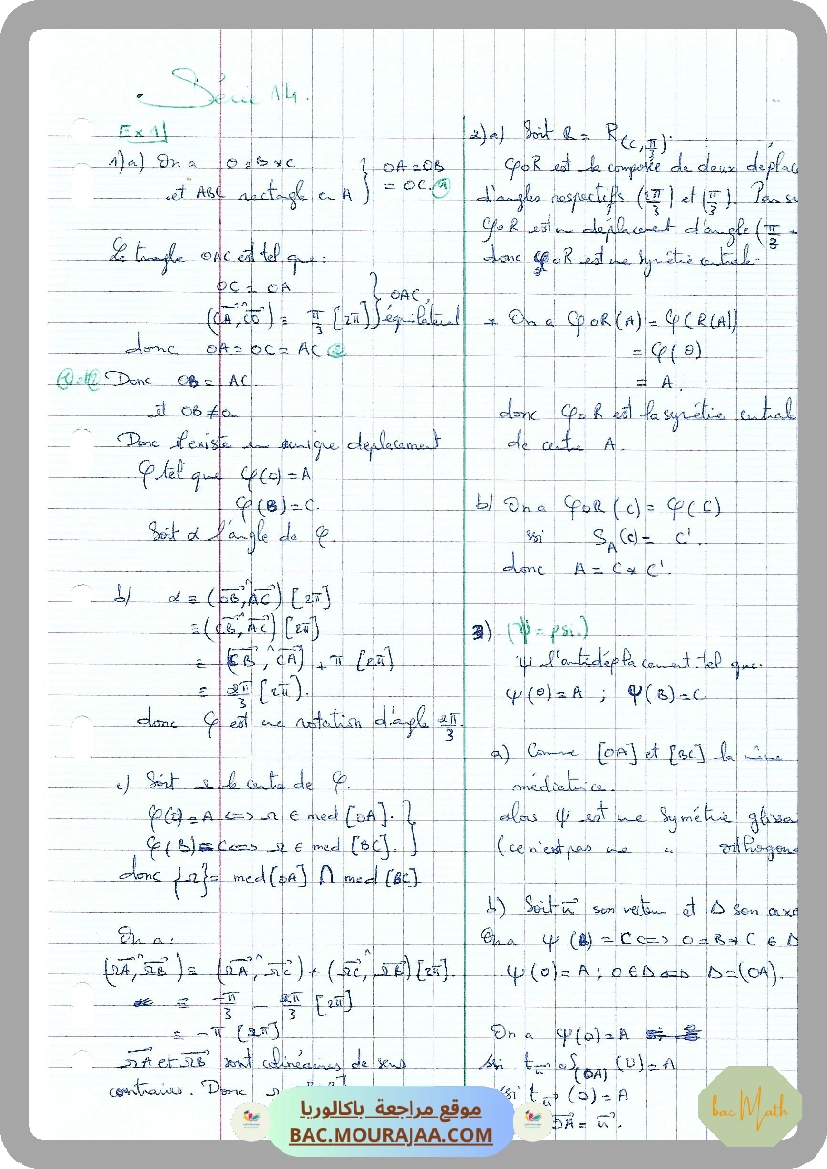 Série 14.
Ex 1)
1) a) On a O = B * C
et ABC rectangle en A
OA = OB
= OC. ①
Le triangle OAC est tel que:
OC = OA
(CA, CO) ≡ π/3 [2π]
OAC équilatéral
donc OA = OC = AC ②
① et ② Donc OB = AC.
et OB ≠ 0.
Donc il existe un unique déplacement
φ tel que φ(O) = A
φ(B) = C.
Soit α l'angle de φ.
b) α ≡ (OB, AC) [2π]
≡ (CB, AC) [2π]
≡ (CB, CA) + π [2π]
≡ 2π/3 [2π].
donc φ est une rotation d'angle 2π/3.
c) Soit Ω le centre de φ.
φ(O) = A <=> Ω ∈ med [OA].
φ(B) = C <=> Ω ∈ med [BC].
donc {Ω} = med [OA] ∩ med [BC]
On a:
(ΩA, ΩB) ≡ (ΩA, ΩC) + (ΩC, ΩB) [2π].
≡ -π/3 - 2π/3 [2π]
≡ -π [2π]
ΩA et ΩB sont colinéaires de sens
contraires. Donc Ω
2) a) Soit R = R(C, π/3).
φoR est la composée de deux déplac
d'angles respectifs (2π/3) et (π/3). Par su
φoR est un déplacement d'angle (π
donc φoR est une symétrie centrale.
* On a φoR(A) = φ(R(A))
= φ(O)
= A.
donc φoR est la symétrie central
de centre A.
b) On a φoR(C) = φ(C)
ssi S_A(C) = C'.
donc A = C * C'.
3) (ψ = psi.)
ψ l'antidéplacement tel que.
ψ(O) = A ; ψ(B) = C
a) Comme [OA] et [BC] la même
médiatrice.
alors ψ est une symétrie glissa
(ce n'est pas une " orthogona
b) Soit u son vecteur et Δ son axe
On a ψ(B) = C <=> O = B * C ∈ Δ
ψ(O) = A ; O ∈ Δ <=> Δ = (OA).
On a ψ(O) = A
ssi t_u o S_(OA) (O) = A
ssi t_u (O) = A
OA = u.
موقع مراجعة باكالوريا
BAC.MOURAJAA.COM
bac Math